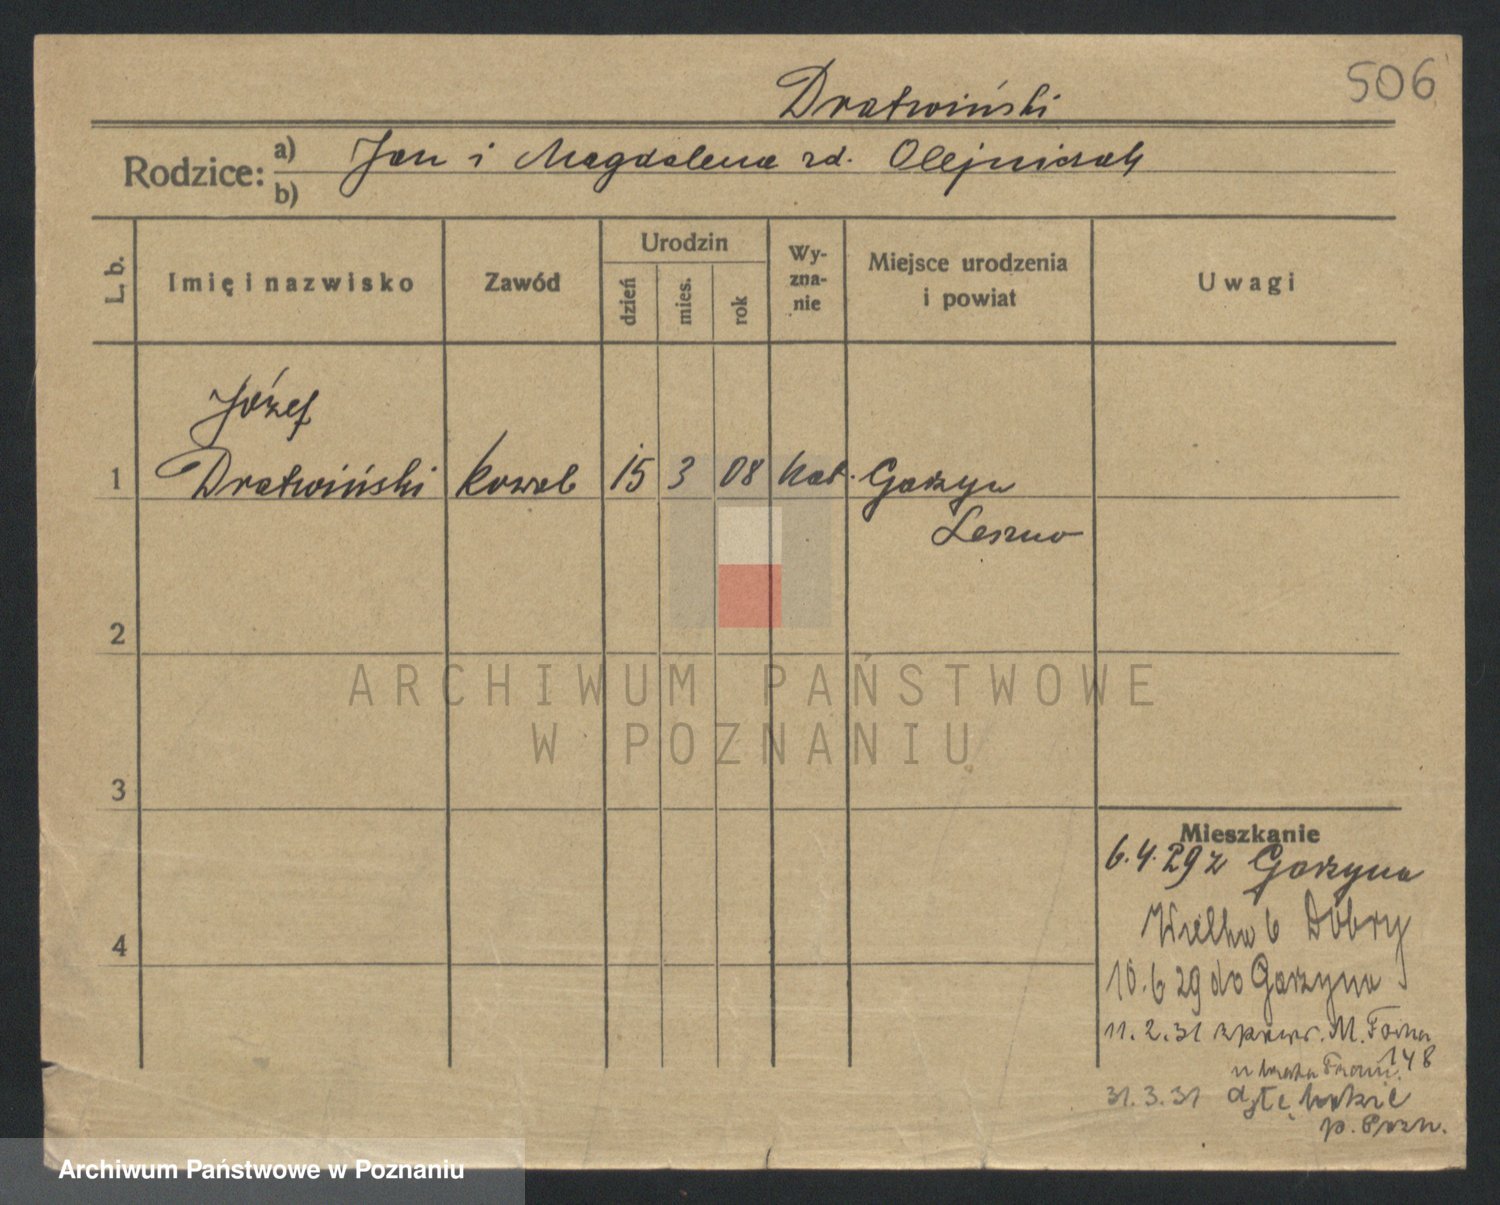 506
Dratwiński
Rodzice: a) Jan i Magdalena zd. Olejniczak
b)
L. b. Imię i nazwisko Zawód Urodzin dzień mies. rok Wyzna-nie Miejsce urodzenia i powiat Uwagi
Józef
1 Dratwiński kowal 15 3 08 kat. Garzyn
Leszno
2
ARCHIWUM PAŃSTWOWE
W POZNANIU
3
Mieszkanie
6.4.29 z Garzyna
Wielka 6 Dobry
4
10.6 29 do Garzyna
11.2.31 M. Focha
148
u brata Fran.
31.3.31
p. Pozn.
Archiwum Państwowe w Poznaniu